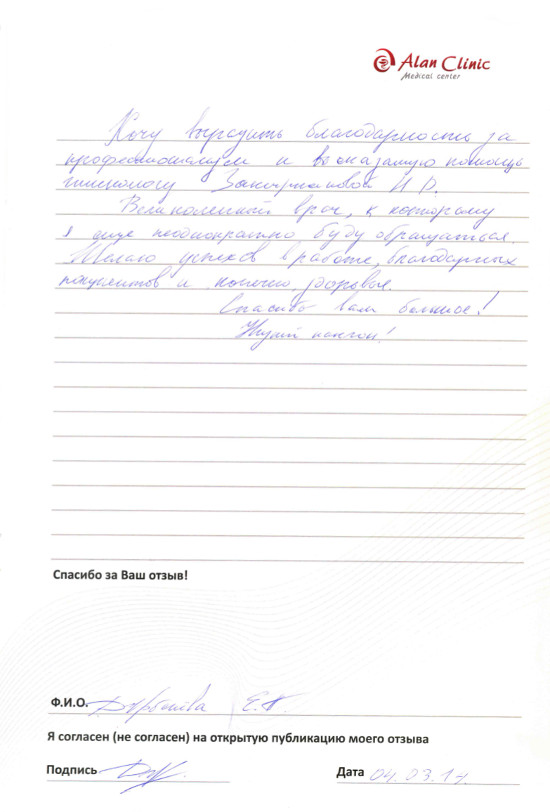 Alan Clinic
Medical center
Хочу выразить благодарность за
профессионализм и высказанную помощь
гинекологу И. Р.
Великолепный врач, к которому
я еще неоднократно буду обращаться.
Желаю успехов в работе, благодарных
пациентов и конечно, здоровья.
Спасибо вам большое!
Спасибо за Ваш отзыв!
Ф.И.О.
Я согласен (не согласен) на открытую публикацию моего отзыва
Подпись
Дата 04.03.17